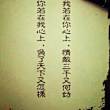 我若在你心上，情敵三千又何妨
你若在我心上，負了天下又怎樣